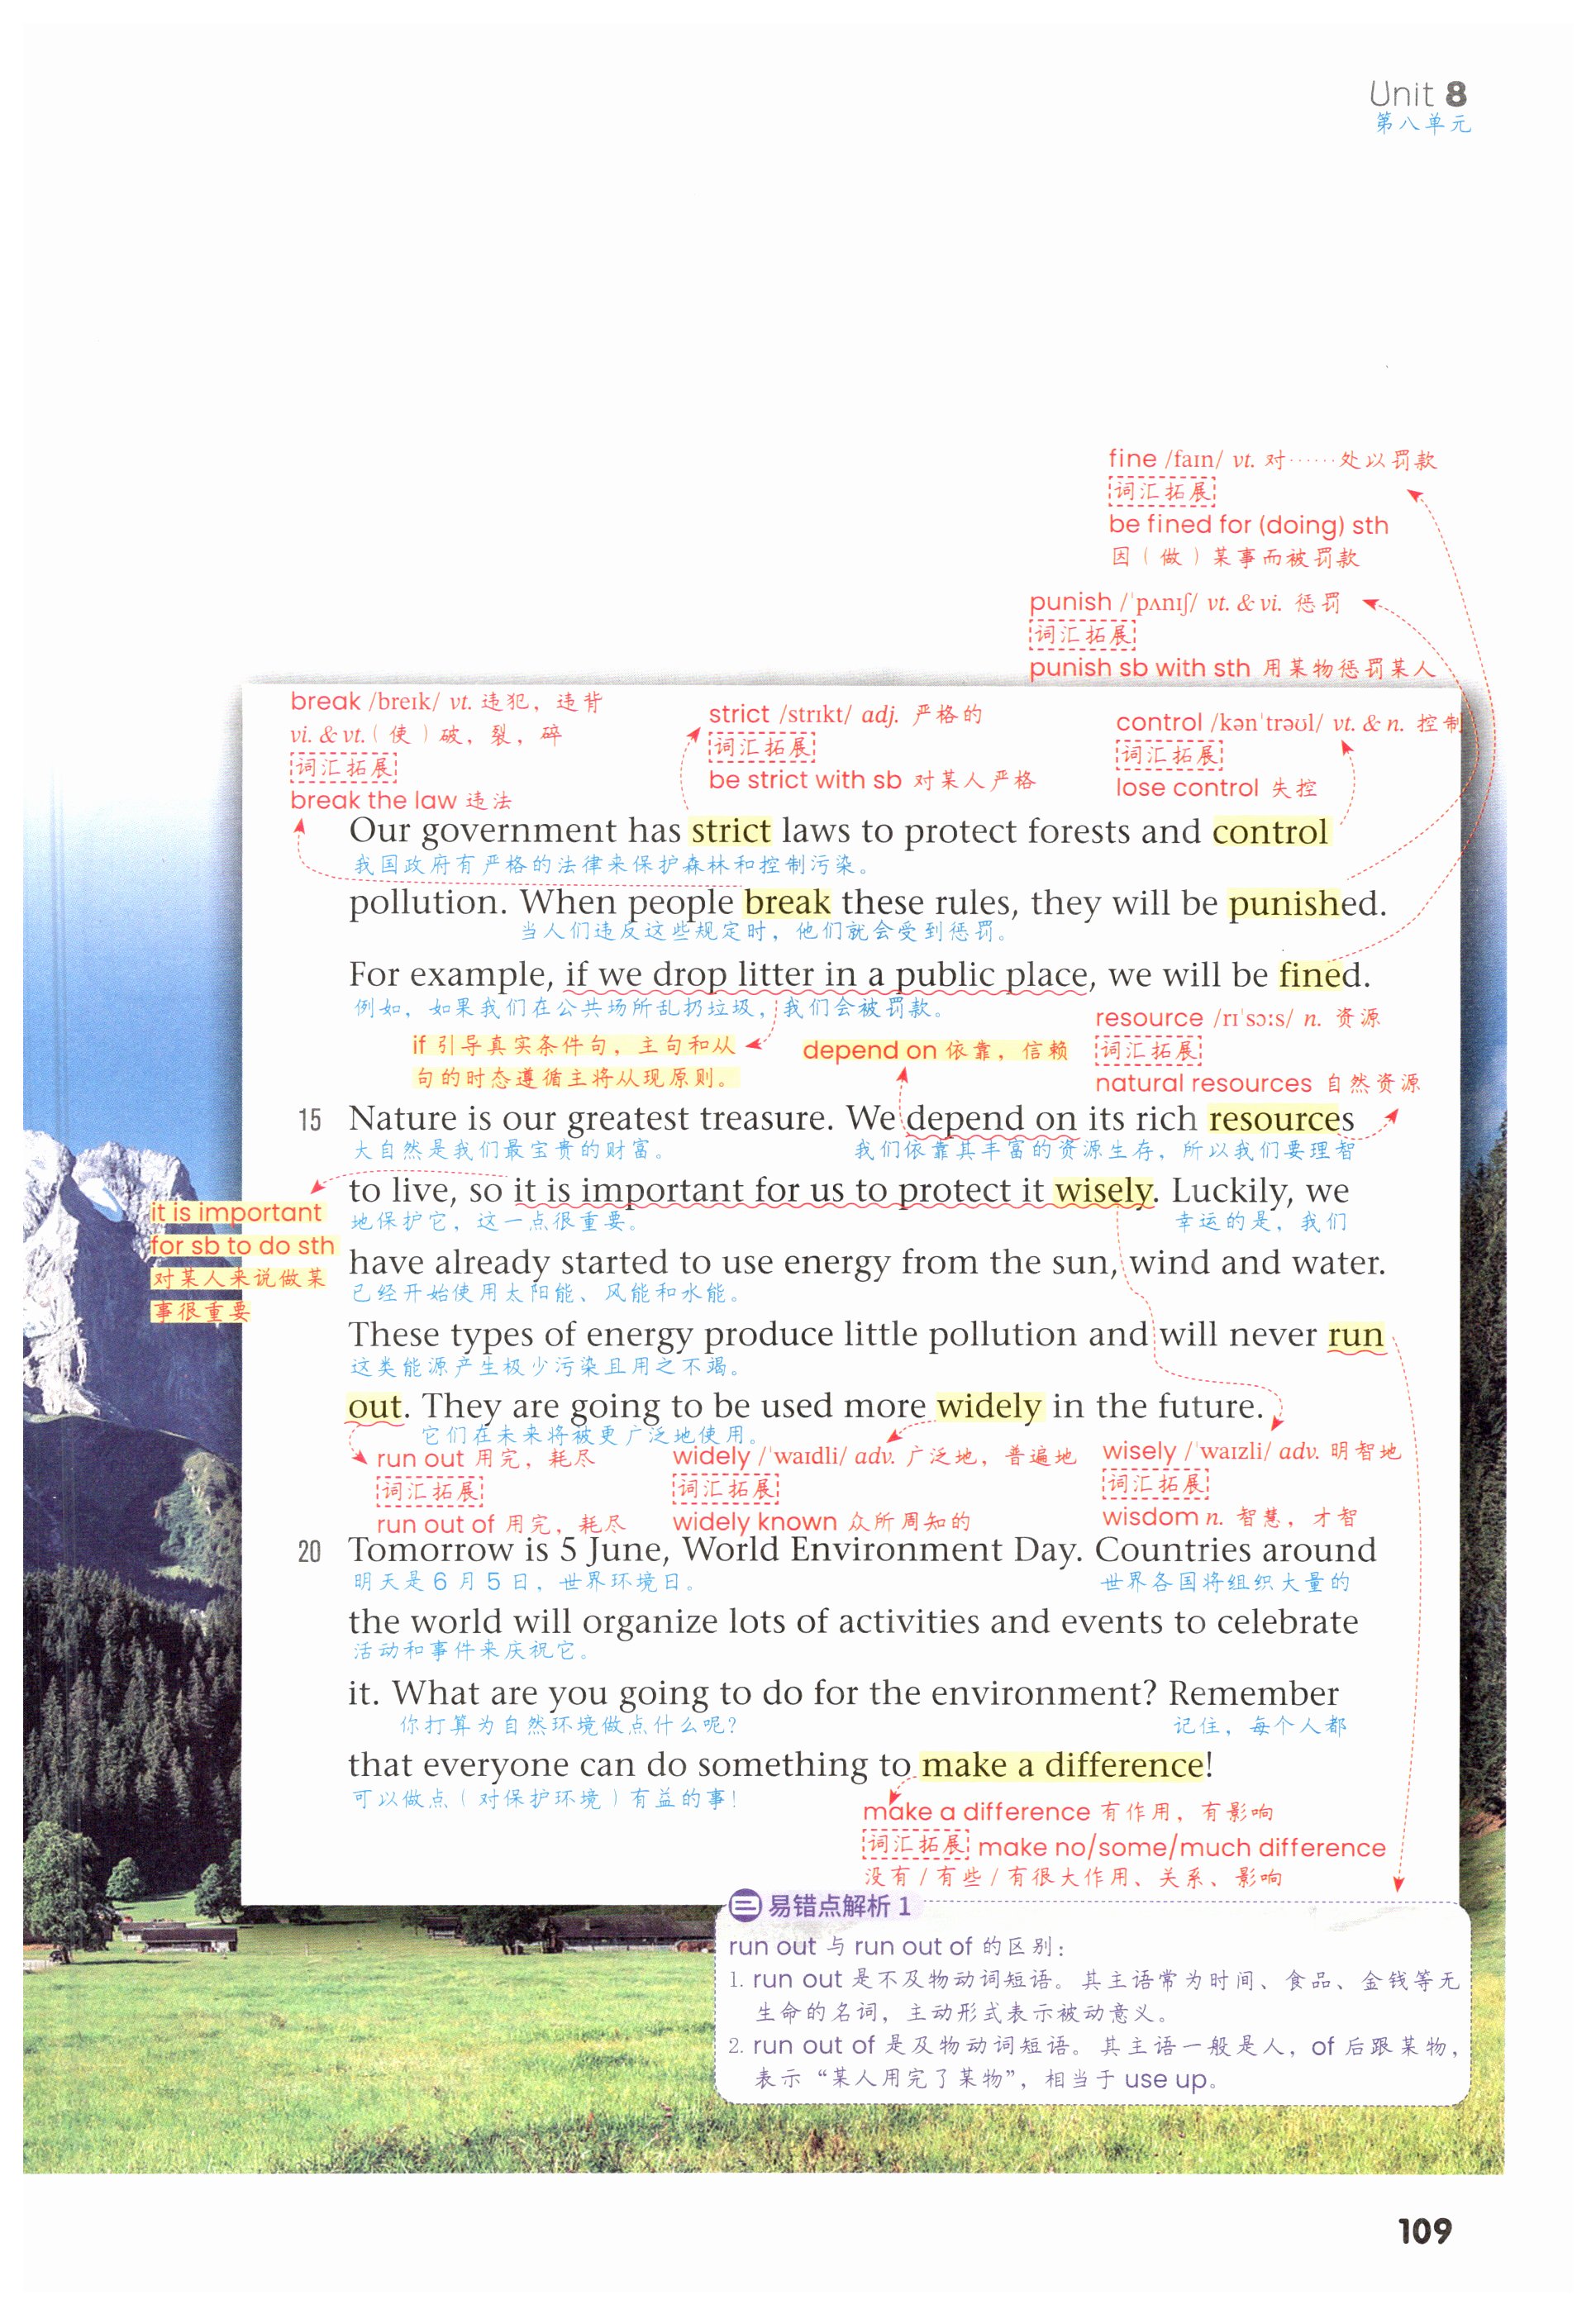 Unit 8
第八单元
fine /faɪn/ vt. 对……处以罚款
词汇拓展
be fined for (doing) sth
因（做）某事而被罚款
punish /ˈpʌnɪʃ/ vt. & vi. 惩罚
词汇拓展
punish sb with sth 用某物惩罚某人
break /breɪk/ vt. 违犯，违背
vi. & vt.（使）破，裂，碎
词汇拓展
break the law 违法
strict /strɪkt/ adj. 严格的
词汇拓展
be strict with sb 对某人严格
control /kənˈtrəʊl/ vt. & n. 控制
词汇拓展
lose control 失控
Our government has strict laws to protect forests and control
我国政府有严格的法律来保护森林和控制污染。
pollution. When people break these rules, they will be punished.
当人们违反这些规定时，他们就会受到惩罚。
For example, if we drop litter in a public place, we will be fined.
例如，如果我们在公共场所乱扔垃圾，我们会被罚款。
if 引导真实条件句，主句和从
句的时态遵循主将从现原则。
depend on 依靠，信赖
resource /rɪˈsɔːs/ n. 资源
词汇拓展
natural resources 自然资源
15 Nature is our greatest treasure. We depend on its rich resources
大自然是我们最宝贵的财富。 我们依靠其丰富的资源生存，所以我们要理智
to live, so it is important for us to protect it wisely. Luckily, we
地保护它，这一点很重要。 幸运的是，我们
it is important
for sb to do sth
对某人来说做某
事很重要
have already started to use energy from the sun, wind and water.
已经开始使用太阳能、风能和水能。
These types of energy produce little pollution and will never run
这类能源产生极少污染且用之不竭。
out. They are going to be used more widely in the future.
它们在未来将被更广泛地使用。
run out 用完，耗尽
词汇拓展
run out of 用完，耗尽
widely /ˈwaɪdli/ adv. 广泛地，普遍地
词汇拓展
widely known 众所周知的
wisely /ˈwaɪzli/ adv. 明智地
词汇拓展
wisdom n. 智慧，才智
20 Tomorrow is 5 June, World Environment Day. Countries around
明天是6月5日，世界环境日。 世界各国将组织大量的
the world will organize lots of activities and events to celebrate
活动和事件来庆祝它。
it. What are you going to do for the environment? Remember
你打算为自然环境做点什么呢？ 记住，每个人都
that everyone can do something to make a difference!
可以做点（对保护环境）有益的事！
make a difference 有作用，有影响
词汇拓展 make no/some/much difference
没有/有些/有很大作用、关系、影响
易错点解析 1
run out 与 run out of 的区别：
1. run out 是不及物动词短语。其主语常为时间、食品、金钱等无
生命的名词，主动形式表示被动意义。
2. run out of 是及物动词短语。其主语一般是人，of 后跟某物，
表示“某人用完了某物”，相当于 use up。
109